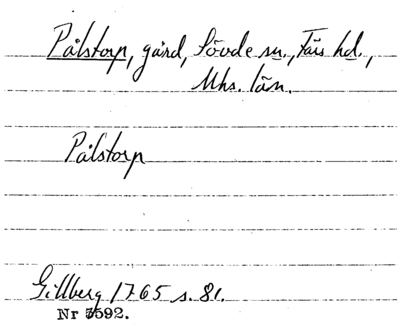 Pålstorp, gård, Sövde sn., Färs hd.,
Mhs. län.
Pålstorp
Gillberg 1765 s. 81.
Nr 5592.